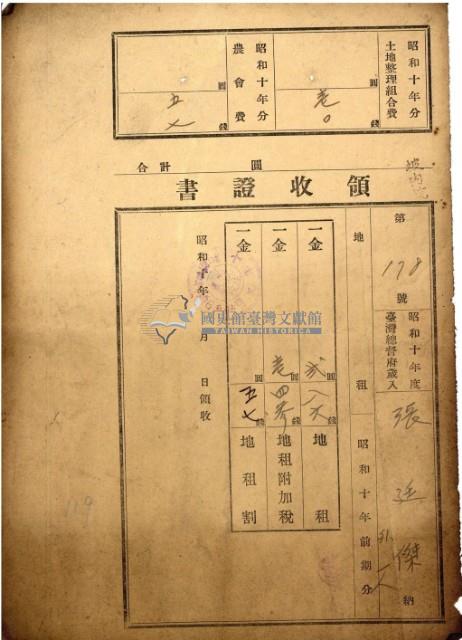 昭和十年分
土地整理組合費
圓
壱
〇
錢
昭和十年分
農會費
圓
五
七
錢
合計 圓
領收證書
第 178 號
昭和十年度
臺灣總督府歲入
張 傑 納
地租
昭和十年前期分
外一人
一金 弐圓八六錢 地租
一金 壱圓四 錢 地租附加稅
一金 圓五七錢 地租割
昭和十年 月 日領收
國史館臺灣文獻館
TAIWAN HISTORICA
119